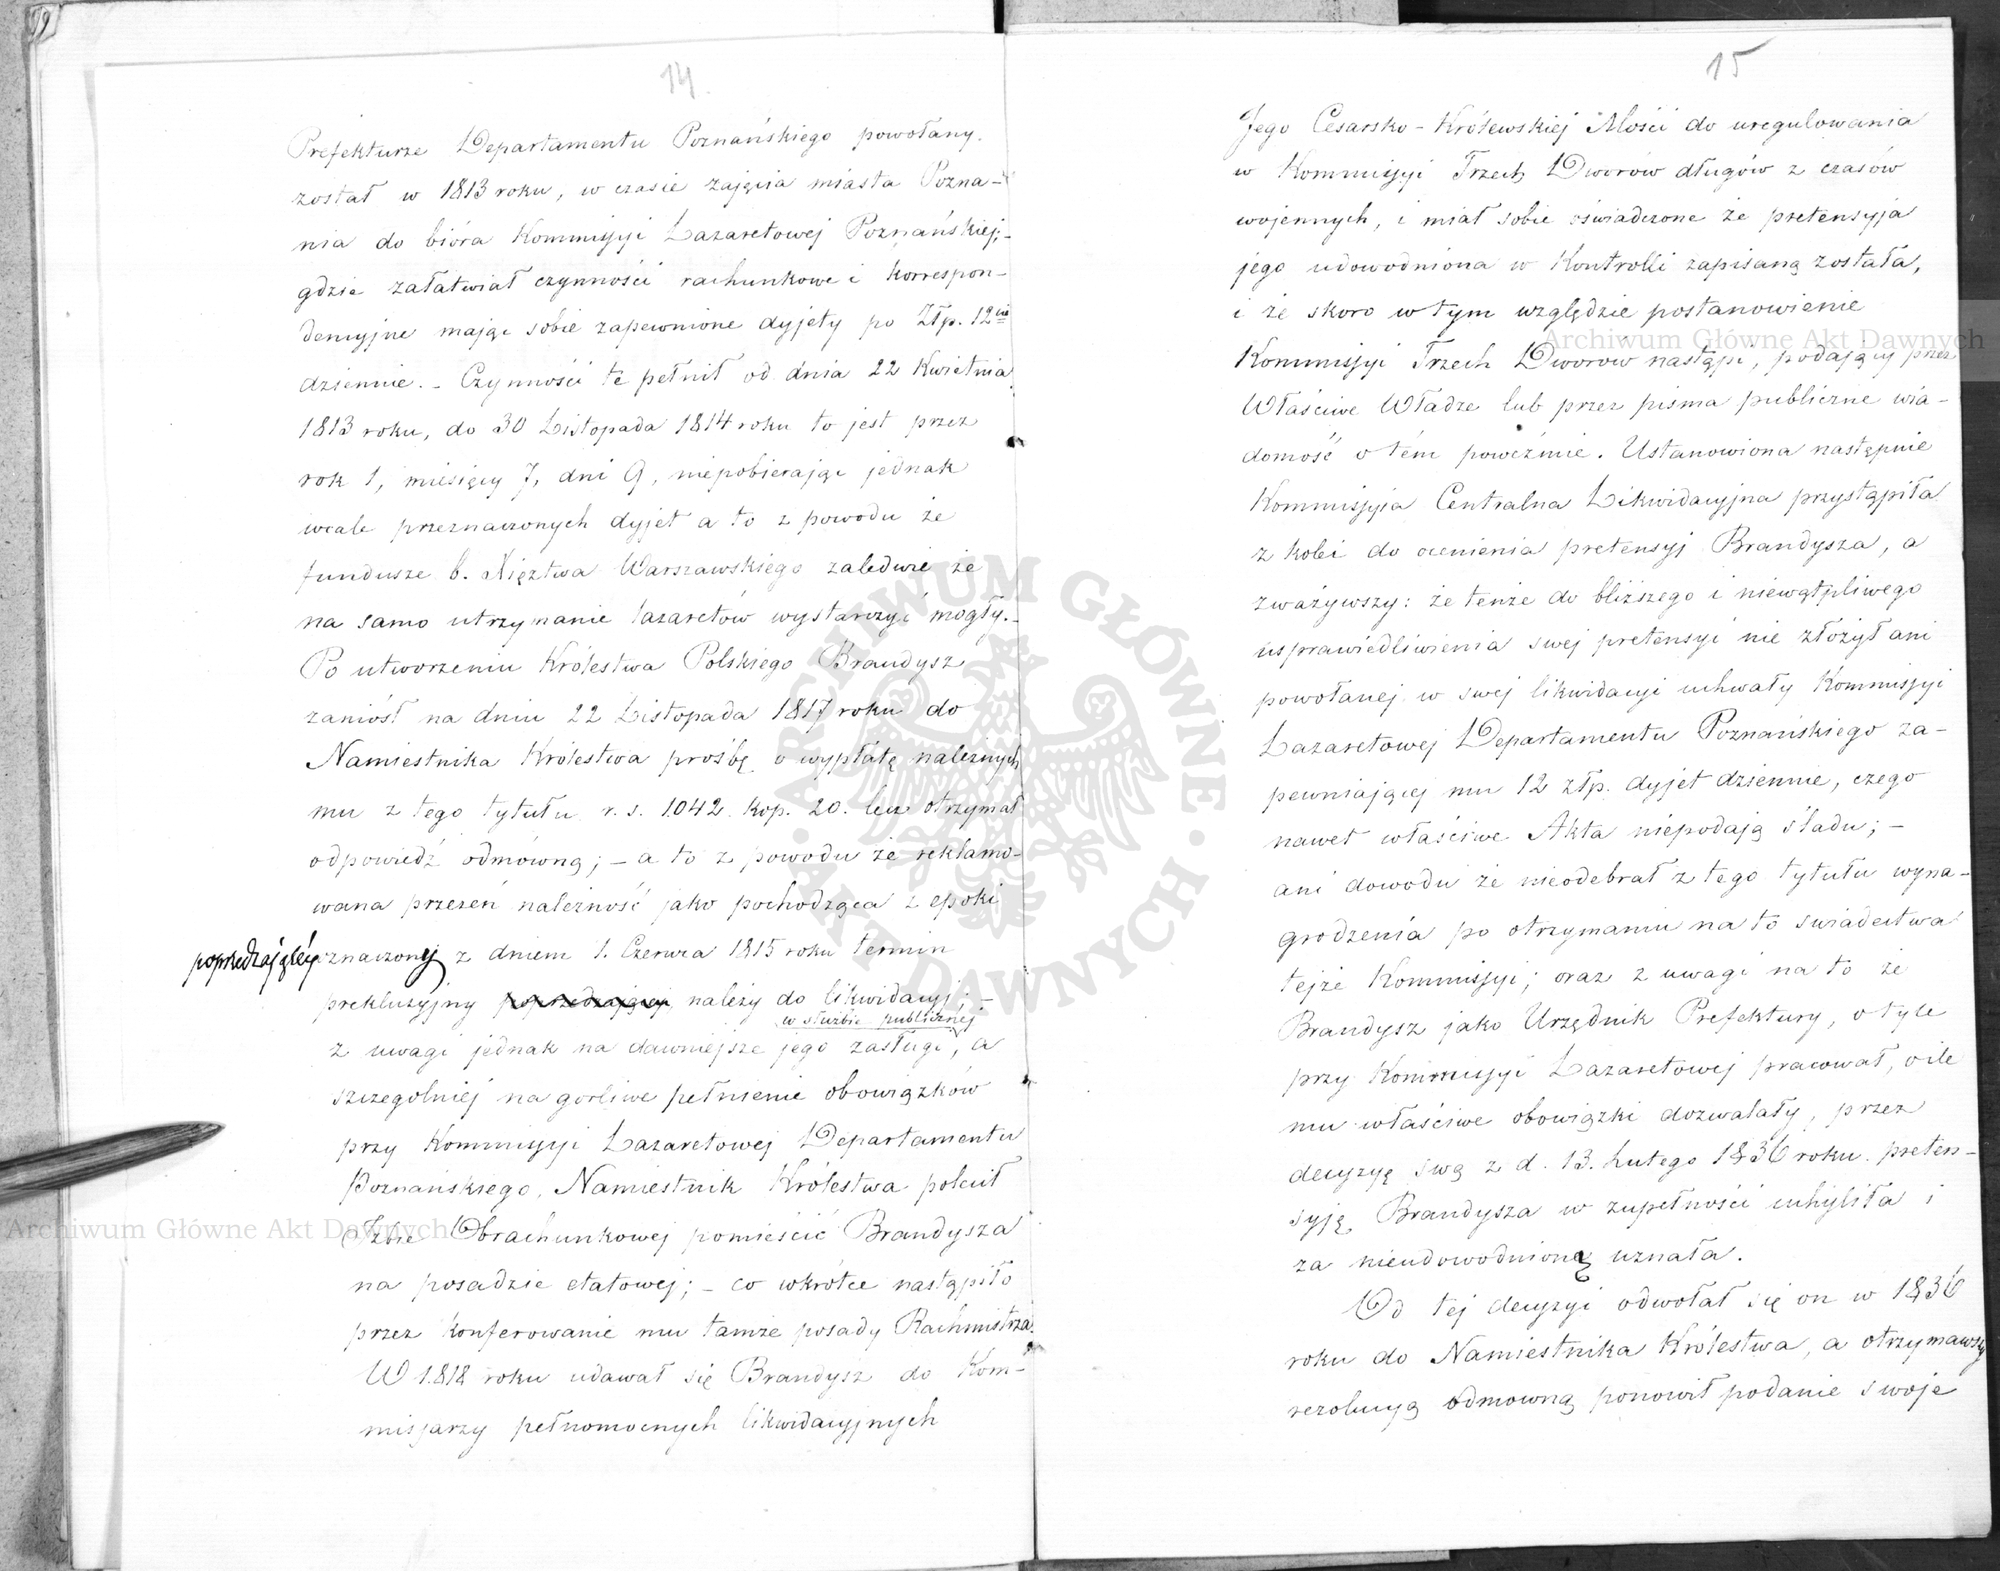 14.
Prefekturze Departamentu Poznańskiego powołany
został w 1813 roku, w czasie zajęcia miasta Pozna-
nia do bióra Kommissyi Lazaretowej Poznańskiej;
gdzie załatwiał czynności rachunkowe i korrespon-
dencyjne mając sobie zapewnione dyjety po Złp. 12
dziennie. – Czynności te pełnił od dnia 22 Kwietnia
1813 roku, do 30 Listopada 1814 roku to jest przez
rok 1, miesięcy 7, dni 9, niepobierając jednak
wcale przeznaczonych dyjet a to z powodu że
fundusze b. Xięztwa Warszawskiego zaledwie że
na samo utrzymanie lazaretów wystarczyć mogły. –
Po utworzeniu Królestwa Polskiego Brandysz
zaniósł na dniu 22 Listopada 1817 roku do
Namiestnika Królestwa prośbę o wypłatę należnych
mu z tego tytułu r. s. 1042 kop. 20. lecz otrzymał
odpowiedź odmówną; – a to z powodu że reklamo-
wana przezeń należność jako pochodząca z epoki
poprzedzającéj oznaczony z dniem 1. Czerwca 1815 roku termin
prekluzyjny poprzedzającej należy do likwidacyj; –
w służbie publicznej
z uwagi jednak na dawniejsze jego zasługi, a
szczególniéj na gorliwe pełnienie obowiązków
przy Kommissyi Lazaretowej Departamentu
Poznańskiego, Namiestnik Królestwa polecił
Izbie Obrachunkowej pomieścić Brandysza
na posadzie etatowej; – co wkrótce nastąpiło
przez konferowanie mu tamże posady Rachmistrza.
W 1818 roku udawał się Brandysz do Kom-
missarzy pełnomocnych likwidacyjnych
15
Jego Cesarsko-Królewskiej Mości do uregulowania
w Kommissyi Trzech Dworów długów z czasów
wojennych, i miał sobie oświadczone że pretensyja
jego udowodniona w Kontrolli zapisaną została,
i że skoro w tym względzie postanowienie
Kommissyi Trzech Dworow nastąpi, podający przez
Właściwe Władze lub przez pisma publiczne wia-
domość o tém poweźmie. Ustanowiona następnie
Kommissyia Centralna Likwidacyjna przystąpiła
z kolei do ocenienia pretensyj Brandysza, a
zważywszy: że tenże do bliższego i niewątpliwego
usprawiedliwienia swej pretensyi nie złożył ani
powołanej w swej likwidacyi uchwały Kommissyi
Lazaretowej Departamentu Poznańskiego za-
pewniającej mu 12 złp. dyjet dziennie, czego
nawet właściwe Akta niepodają śladu; –
ani dowodu że nieodebrał z tego tytułu wyna-
grodzenia po otrzymaniu na to swiadectwa
tejże Kommissyi; oraz z uwagi na to że
Brandysz jako Urzędnik Prefektury, o tyle
przy Kommissyi Lazaretowej pracował, o ile
mu właściwe obowiązki dozwalały, przez
decyzyę swą z d. 13. Lutego 1836 roku. preten-
syję Brandysza w zupełności uchyliła i
za nieudowodnioną uznała.
Od tej decyzyi odwołał się on w 1836
roku do Namiestnika Królestwa, a otrzymawszy
rezolucyą odmowną ponowił podanie swoje
Archiwum Główne Akt Dawnych
Archiwum Główne Akt Dawnych
ARCHIWUM GŁÓWNE AKT DAWNYCH